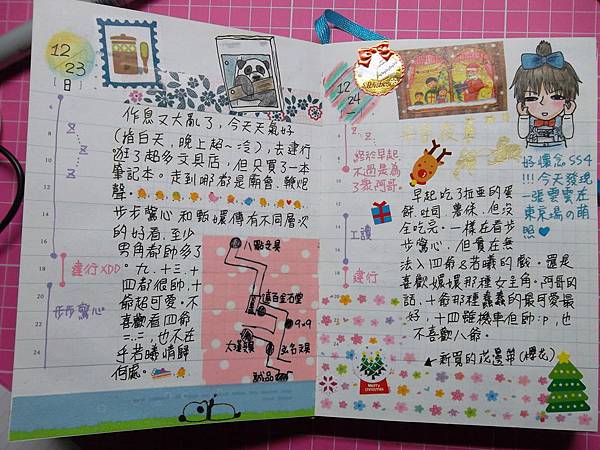 12/23
日
作息又大亂了，今天天氣好
(指白天，晚上超~冷)，去建行
逛了超多文具店，但只買了一本
筆記本。走到哪都是廟會、鞭炮
聲。
步步驚心 和甄嬛傳有不同層次
的好看，至少
男角都帥多了
XDD。九、十三、十
四都很帥，十
爺超可愛。不
喜歡看四爺
=..=，也不在
乎若曦情歸
何處。
6
8
10
12
14
16
18
20
22
24
z
z
z
建行
步步驚心
八點文具
遠百金石堂
9x9
大
名文具
誠品
12/24
一
z
z
終於早起
不過是為
了獻阿哥。
工讀
建行
好懷念SS4
!!!今天發現
一張雲雲在
東京場の萌
照♥
早起吃了拉亞的蛋
餅、吐司、薯條，但沒
全吃完。一樣在看步
步驚心，但實在無
法入四爺&若曦的戲。還是
喜歡嬛嬛那種女主角。阿哥的
話，十爺那種蠢蠢的最可愛最
好，十四雖機車但帥:p，也
不喜歡八爺。
←新買的花邊帶(櫻花)
Merry
Christmas